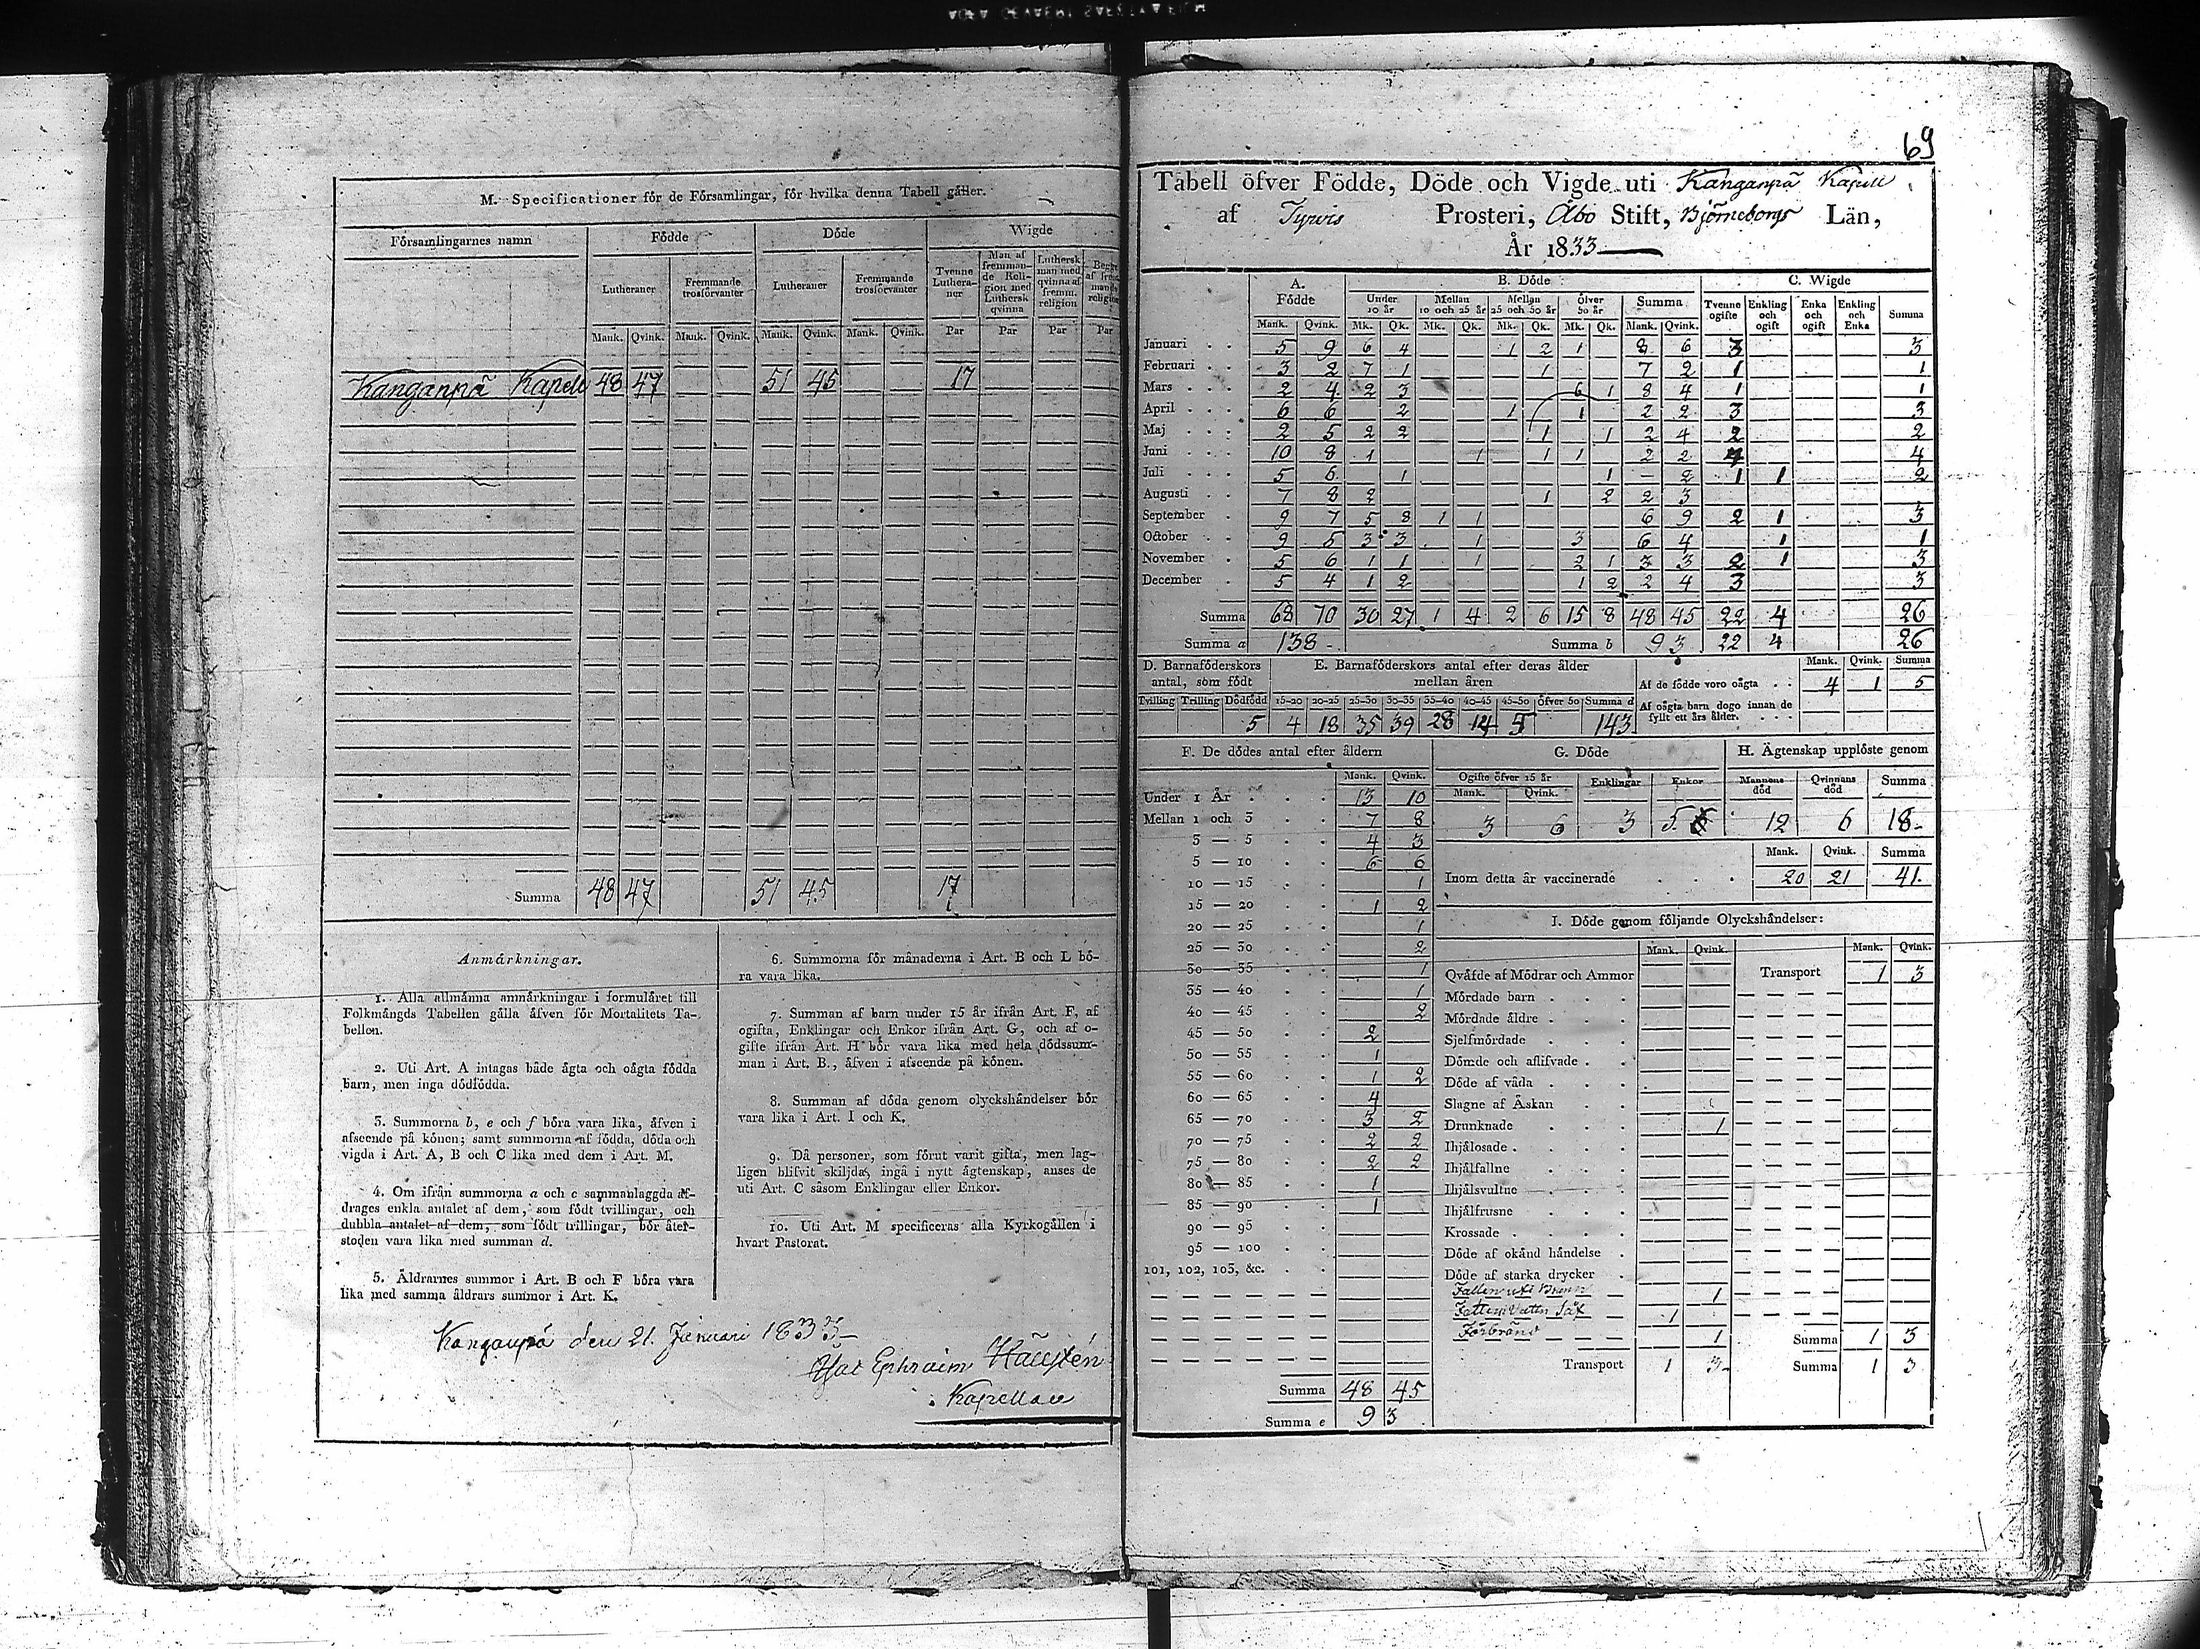 M. Specificationer för de Församlingar, för hvilka denna Tabell gäller.
Församlingarnes namn | Födde | Döde | Wigde
Lutheraner | Fremmande trosförvanter | Lutheraner | Fremmande trosförvanter | Tvenne Lutheraner | Man af fremmande Religion med Luthersk qvinna | Luthersk man med qvinna af fremm. religion
Mank. Qvink. Mank. Qvink. Mank. Qvink. Mank. Qvink. Par Par Par Par
Kanganpä Kapell 48 47 51 45 17
Summa 48 47 51 45 17
Anmärkningar.
1. Alla allmänna anmärkningar i formuläret till
Folkmängds Tabellen gälla äfven för Mortalitets Ta-
bellen.
2. Uti Art. A intagas både ägta och oägta födda
barn, men inga dödfödda.
3. Summorna b, e och f böra vara lika, äfven i
afseende på könen; samt summorna af födda, döda och
vigda i Art. A, B och C lika med dem i Art. M.
4. Om ifrån summorna a och c sammanlaggda af-
drages enkla antalet af dem, som födt tvillingar, och
dubbla antalet af dem, som födt trillingar, bör åter-
stoden vara lika med summan d.
5. Åldrarnes summor i Art. B och F böra vara
lika med samma åldrars summor i Art. K.
6. Summorna för månaderna i Art. B och L bö-
ra vara lika.
7. Summan af barn under 15 år ifrån Art. F, af
ogifta, Enklingar och Enkor ifrån Art. G, och af o-
gifte ifrån Art. H bör vara lika med hela dödssum-
man i Art. B., äfven i afseende på könen.
8. Summan af döda genom olyckshändelser bör
vara lika i Art. I och K.
9. Då personer, som förut varit gifta, men lag-
ligen blifvit skiljda, ingå i nytt ägtenskap, anses de
uti Art. C såsom Enklingar eller Enkor.
10. Uti Art. M specificeras alla Kyrkogällen i
hvart Pastorat.
Kanganpä den 21. Januari 1833
Ephraim Hällstén
Kapellan
69
Tabell öfver Födde, Döde och Vigde uti Kanganpä Kapell
af Tyrvis Prosteri, Åbo Stift, Björneborgs Län,
År 1833
A. Födde | B. Döde | C. Wigde
Under 10 år | Mellan 10 och 25 år | Mellan 25 och 50 år | Öfver 50 år | Summa | Tvenne ogifte | Enkling och ogift | Enka och ogift | Enkling och Enka | Summa
Mank. Qvink. Mk. Qk. Mk. Qk. Mk. Qk. Mk. Qk. Mank. Qvink.
Januari 5 9 6 4 1 2 1 8 6 3 3
Februari 3 2 7 1 1 7 2 1 1
Mars 2 4 2 3 6 1 8 4 1 1
April 6 6 2 1 1 2 2 3 3
Maj 2 5 2 2 1 1 2 4 2 2
Juni 10 8 1 1 1 1 2 2 4 4
Juli 5 6 1 1 - 2 1 1 2
Augusti 7 8 2 1 2 2 3
September 9 7 5 8 1 1 6 9 2 1 3
October 9 5 3 3 1 3 6 4 1 1
November 5 6 1 1 1 2 1 3 3 2 1 3
December 5 4 1 2 1 2 2 4 3 3
Summa 68 70 30 27 1 4 2 6 15 8 48 45 22 4 26
Summa a 138 Summa b 93 22 4 26
D. Barnaföderskors antal, som födt
Tvilling Trilling Dödfödd
5
E. Barnaföderskors antal efter deras ålder mellan åren
15-20 20-25 25-30 30-35 35-40 40-45 45-50 Öfver 50 Summa d
4 18 35 39 28 14 5 143
Mank. Qvink. Summa
Af de födde voro oägta 4 1 5
Af oägta barn dogo innan de
fyllt ett års ålder.
F. De dödes antal efter åldern
Mank. Qvink.
Under 1 År 13 10
Mellan 1 och 3 7 8
3 — 5 4 3
5 — 10 6 6
10 — 15 1
15 — 20 1 2
20 — 25 1
25 — 30 2
30 — 35 1
35 — 40 1
40 — 45 2
45 — 50 2
50 — 55 1
55 — 60 1 2
60 — 65 4
65 — 70 3 2
70 — 75 2 2
75 — 80 2 2
80 — 85 1
85 — 90 1
90 — 95
95 — 100
101, 102, 103, &c.
Summa 48 45
Summa e 93
G. Döde
Ogifte öfver 15 år | Enklingar | Enkor
Mank. Qvink.
3 6 3 5
H. Ägtenskap upplöste genom
Mannens död | Qvinnans död | Summa
12 6 18
Mank. Qvink. Summa
Inom detta år vaccinerade 20 21 41.
I. Döde genom följande Olyckshändelser:
Mank. Qvink. Mank. Qvink.
Qväfde af Mödrar och Ammor
Mördade barn
Mördade äldre
Sjelfmördade
Dömde och aflifvade
Döde af våda
Slagne af Åskan
Drunknade 1
Ihjälosade
Ihjälfallne
Ihjälsvultne
Ihjälfrusne
Krossade
Döde af okänd händelse
Döde af starka drycker
Fallen uti Brunn 1
1
Förbränd 1
Transport 1 3
Transport 1 3
Summa 1 3
Summa 1 3